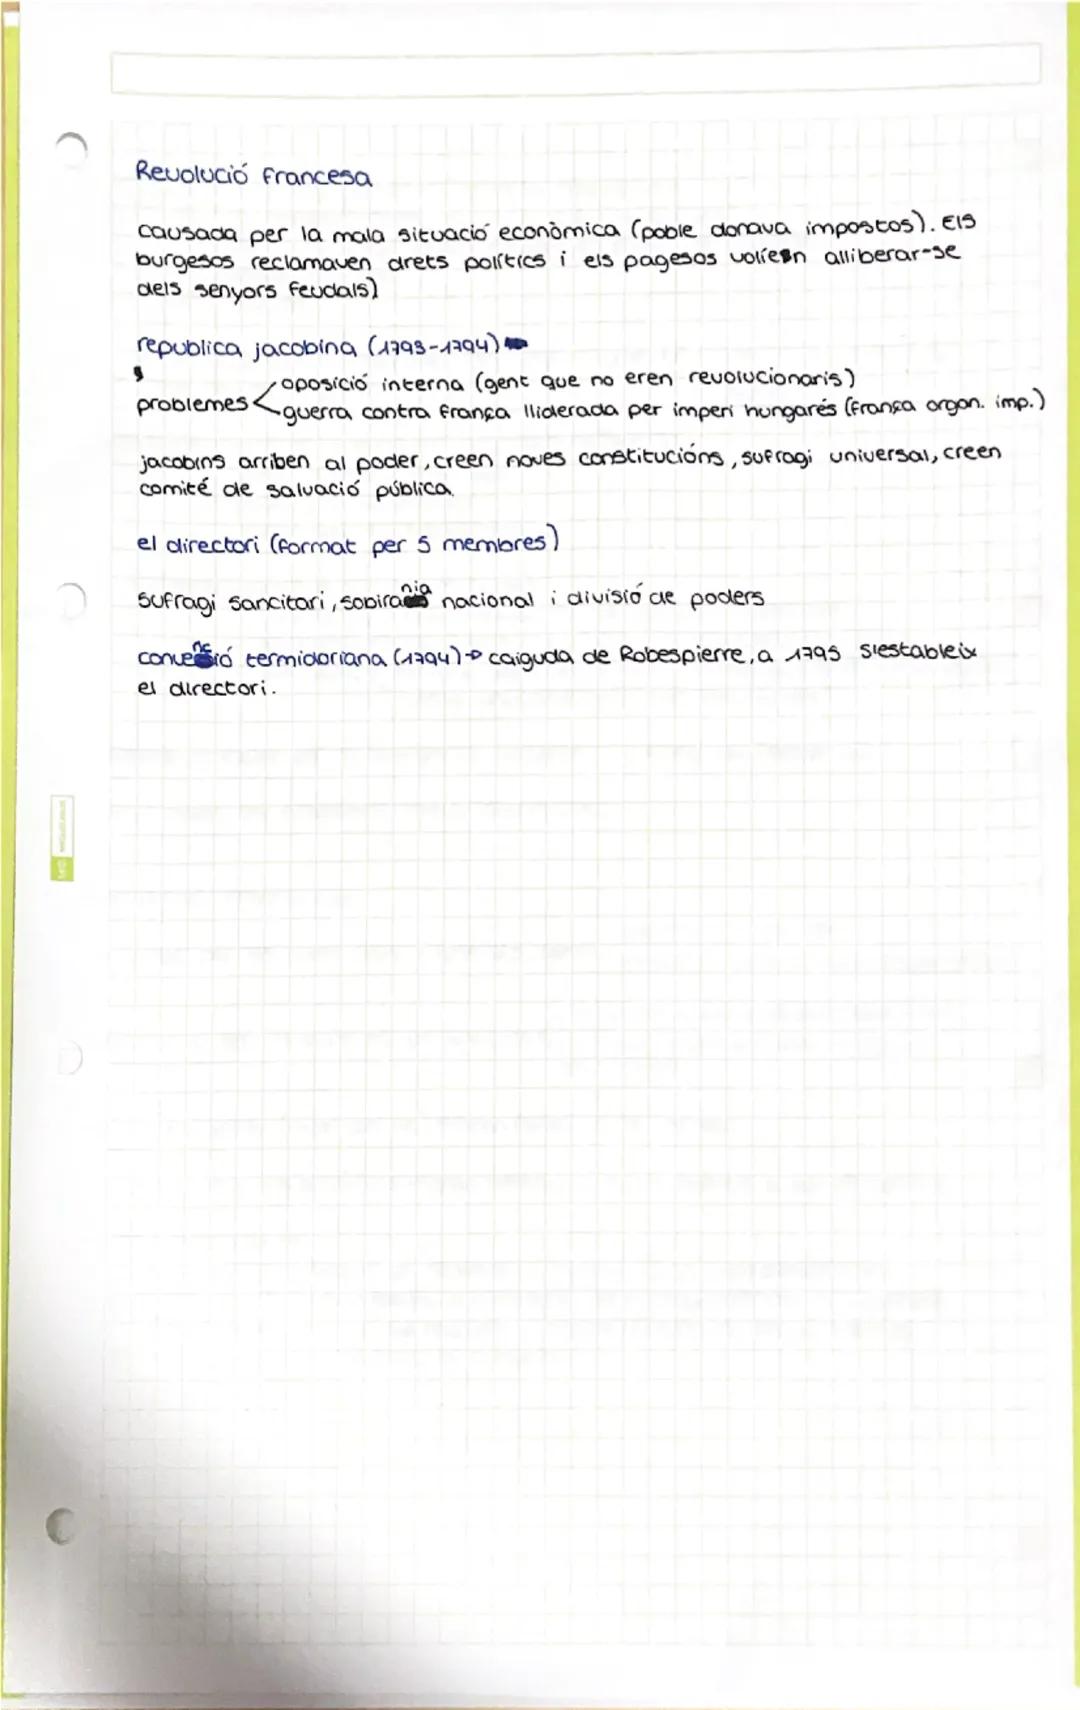 Revolució francesa
causada per la mala situació econòmica (poble donava impostos). Els
burgesos reclamaven drets polítics i els pagesos volíen alliberar-se
dels senyors feudals)
republica jacobina (1793-1794)
problemes
oposició interna (gent que no eren revolucionaris)
guerra contra frança lliderada per imperi hungarés (frança organ. imp.)
jacobins arriben al poder, creen noves constitucións, sufragi universal, creen
comité de salvació pública.
el directori (format per 5 membres)
sufragi sancitari, sobirania nacional i divisió de poders
convenció termidoriana (1794)→ caiguda de Robespierre, a 1795 s'estableix
el directori.